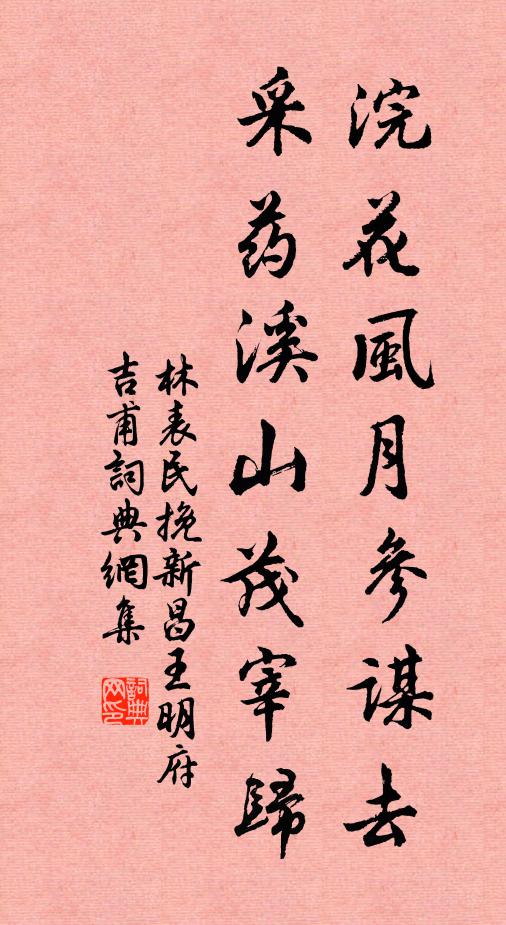 浣花風月參謀去
采药溪山茂宰歸
林表民挽新昌王明府
吉甫詞典網集
詞典
网印